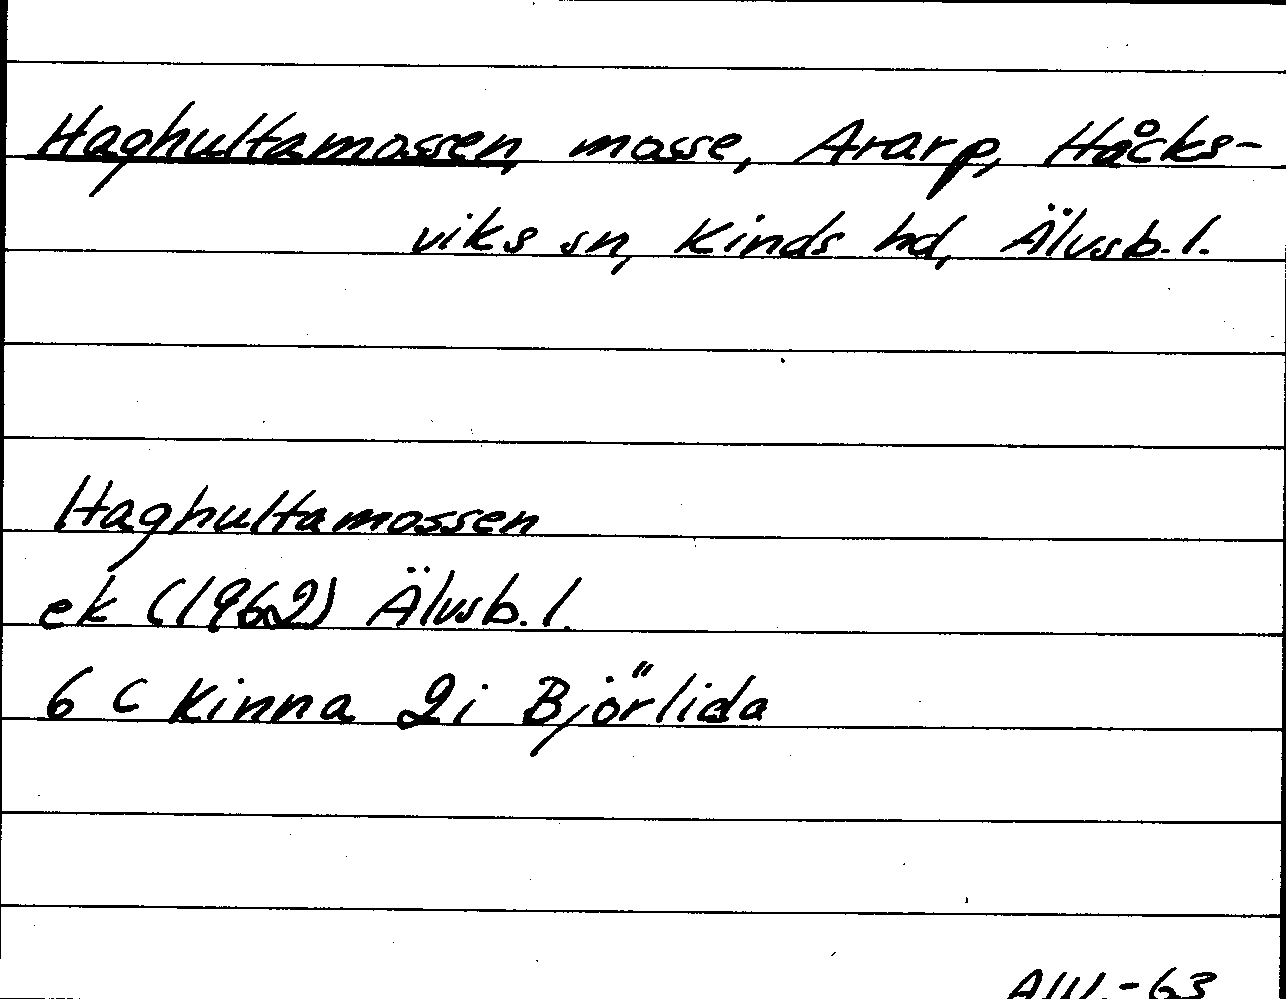 Haghultamossen, mosse, Ararp, Håcks-
viks sn, Kinds hd, Älvsb. l.
Haghultamossen
ek (1962) Älvsb. l.
6 C Kinna 2i Björlida
-63